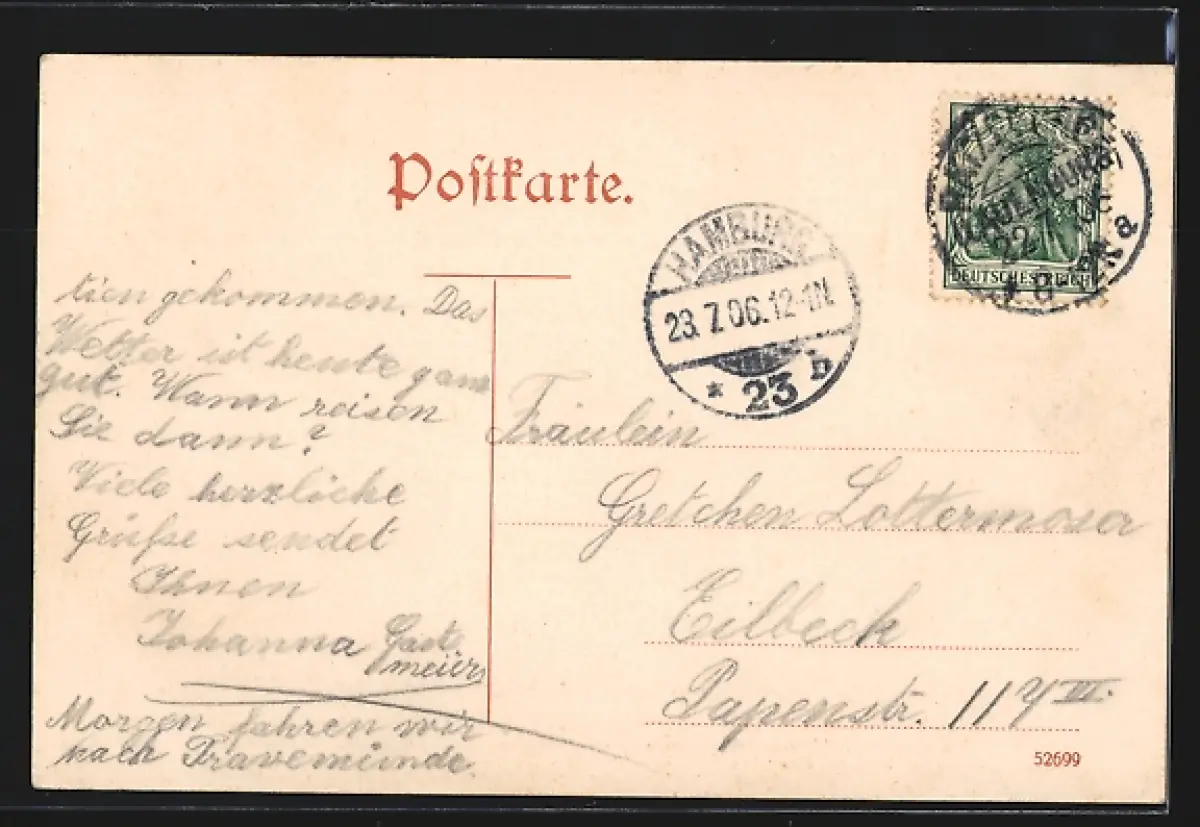 Postkarte.
HAMBURG
23.7.06.12-1N.
* 23 b
22.7.06
DEUTSCHES REICH
tien gekommen. Das
Wetter ist heute ganz
gut. Wann reisen
Sie dann?
Viele herzliche
Grüße sendet
Ihnen
Johanna
meier
Morgen fahren wir
nach Travemünde.
Fräulein
Gretchen Lottermoser
Eilbeck
Papenstr. 117 III.
52699